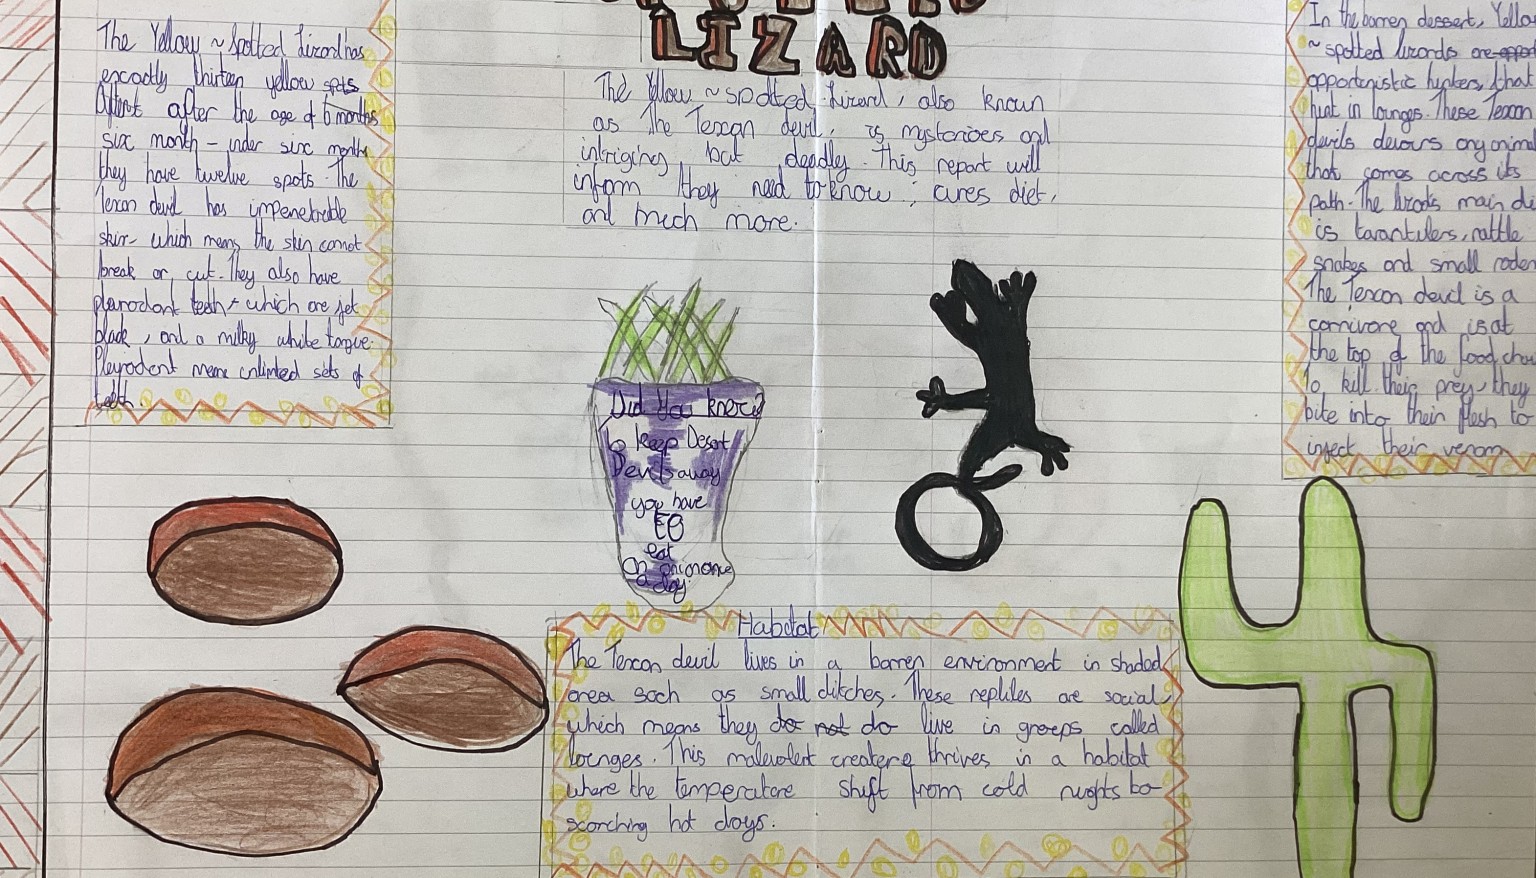 LIZARD
The Yellow ~ spotted Lizard, also known
as The Texan devil, is mysterioes and
intriging but deadly. This report will
inform they need to know ; cures diet,
and much more.
The Yellow ~ spotted Lizard has
excactly thirteen yellow spots
after the age of 6 months
six month - under sixc months
they have twelve spots. The
Texan devil has impenetrable
skin - which means the skin cannot
break or cut. They also have
plearodont teeth - which are jet
black, and a milky white tongue.
Pleyrodent means unlimited sets of
teeth.
In the barren dessert, Yellow
~ spotted lizards are
opportonistic hunters, that
hunt in lounges. These Texan
devils devours any animal
that comes across its
path. The lizads main di
is tarantulers, rattle
snakes and small roden
The Texan devil is a
carnivore and is at
the top of the food chai
To kill their prey, they
bite into their flesh to
inject their venom
Did You know?
to keep Desert
Devils away
you have
to
eat
an onion once
a day.
Habitat
The Texan devil lives in a barren environment in shaded
area such as small ditches. These reptiles are social,
which means they do not do live in groups called
lounges. This malevolent creature thrives in a habitat
where the temperature shift from cold nights to
scorching hot days.